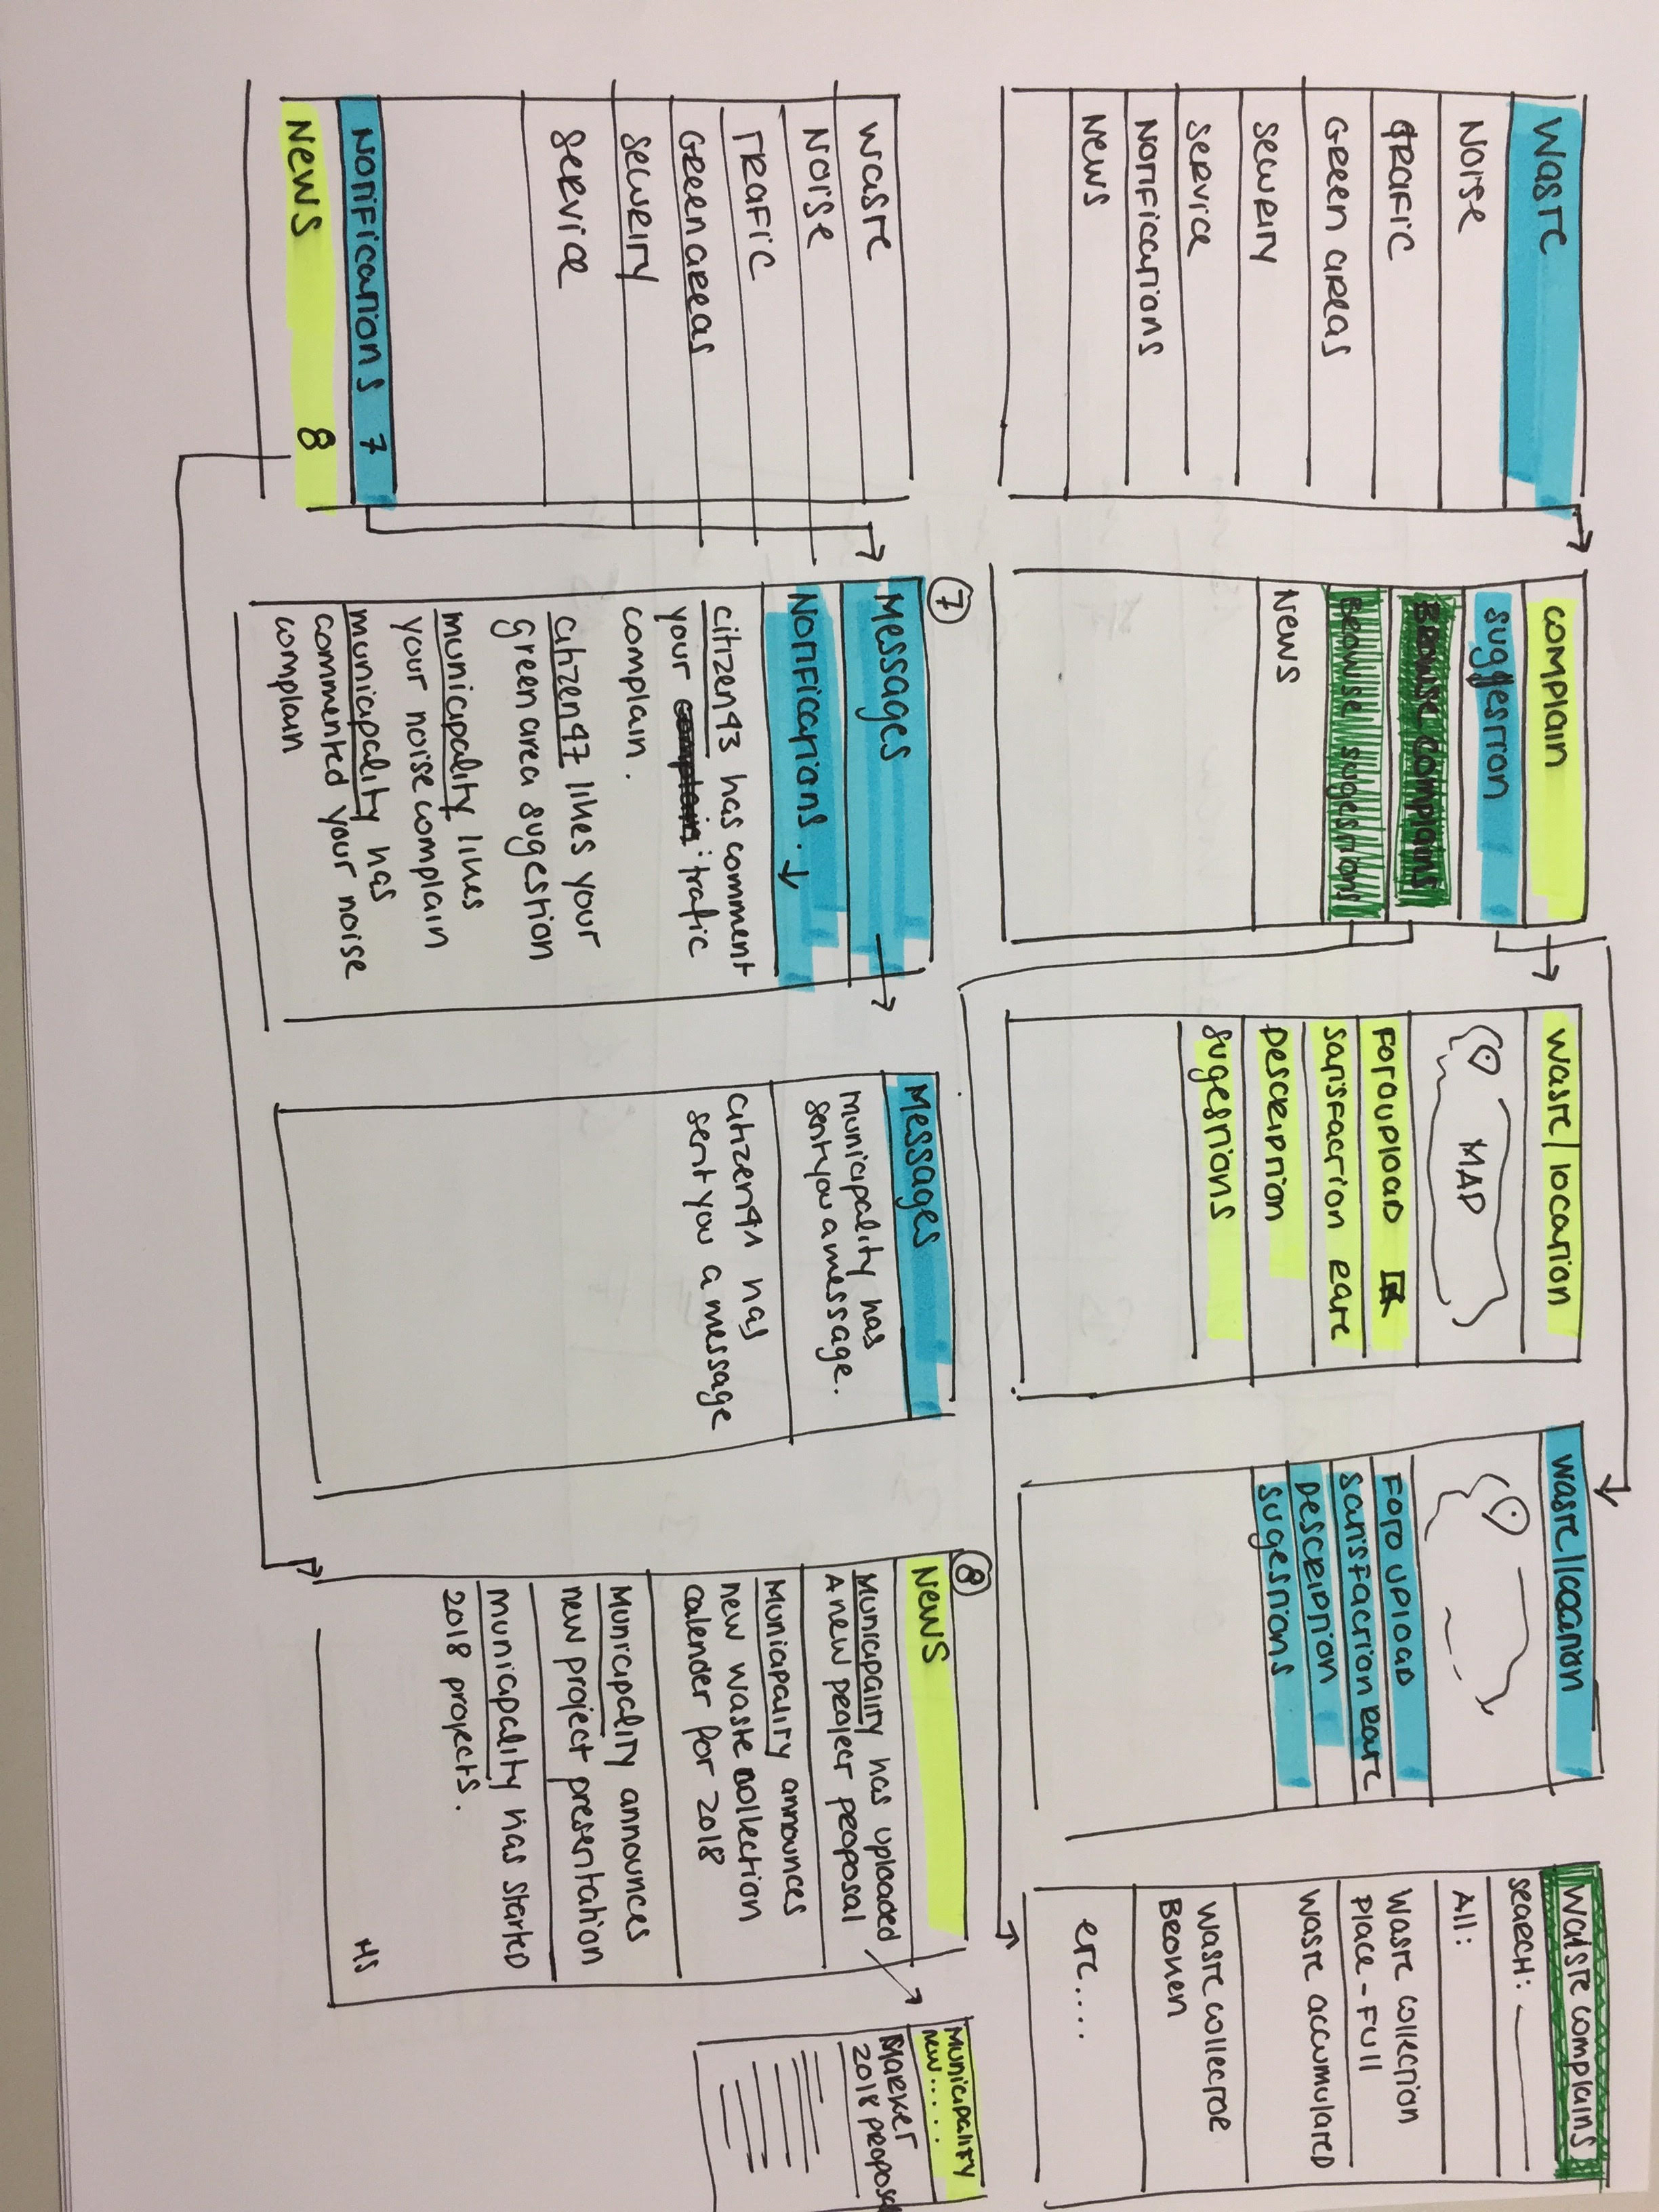 Waste
Noise
Trafic
Green areas
Security
Service
Notifications
News
Complain
suggestion
Browse complains
Browse sugestions
News
Waste/location
MAP
Foto upload
Satisfaction Rate
Description
Sugestions
Waste/location
Foto upload
Satisfaction Rate
Description
Sugestions
Waste complains
Search:
All:
Waste collection
Place - Full
Waste accumulated
Waste collector
Broken
etc....
Waste
Noise
Trafic
Green areas
Security
Service
Notifications 7
News 8
7
Messages
Notifications.
citizen43 has comment
your trafic
complain.
citizen47 likes your
green area sugestion
municipality likes
your noise complain
municipality has
commented your noise
complain
Messages
municipality has
sent you a message.
citizen41 has
sent you a message
8
News
Municipality has uploaded
A new project proposal
Municipality announces
new waste collection
calender for 2018
Municipality announces
new project presentation
municipality has started
2018 projects.
HS
Municipality
new.....
Market
2018 proposa